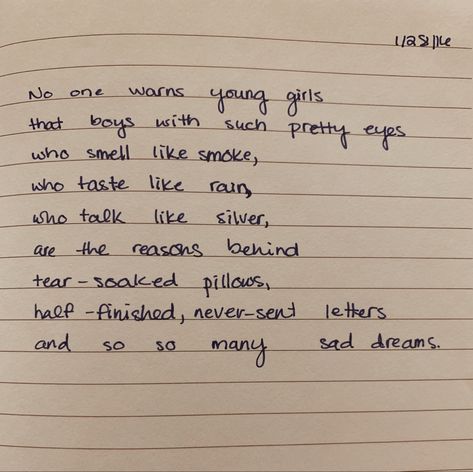 1/28/16
No one warns young girls
that boys with such pretty eyes
who smell like smoke,
who taste like rain,
who talk like silver,
are the reasons behind
tear-soaked pillows,
half-finished, never-sent letters
and so so many sad dreams.